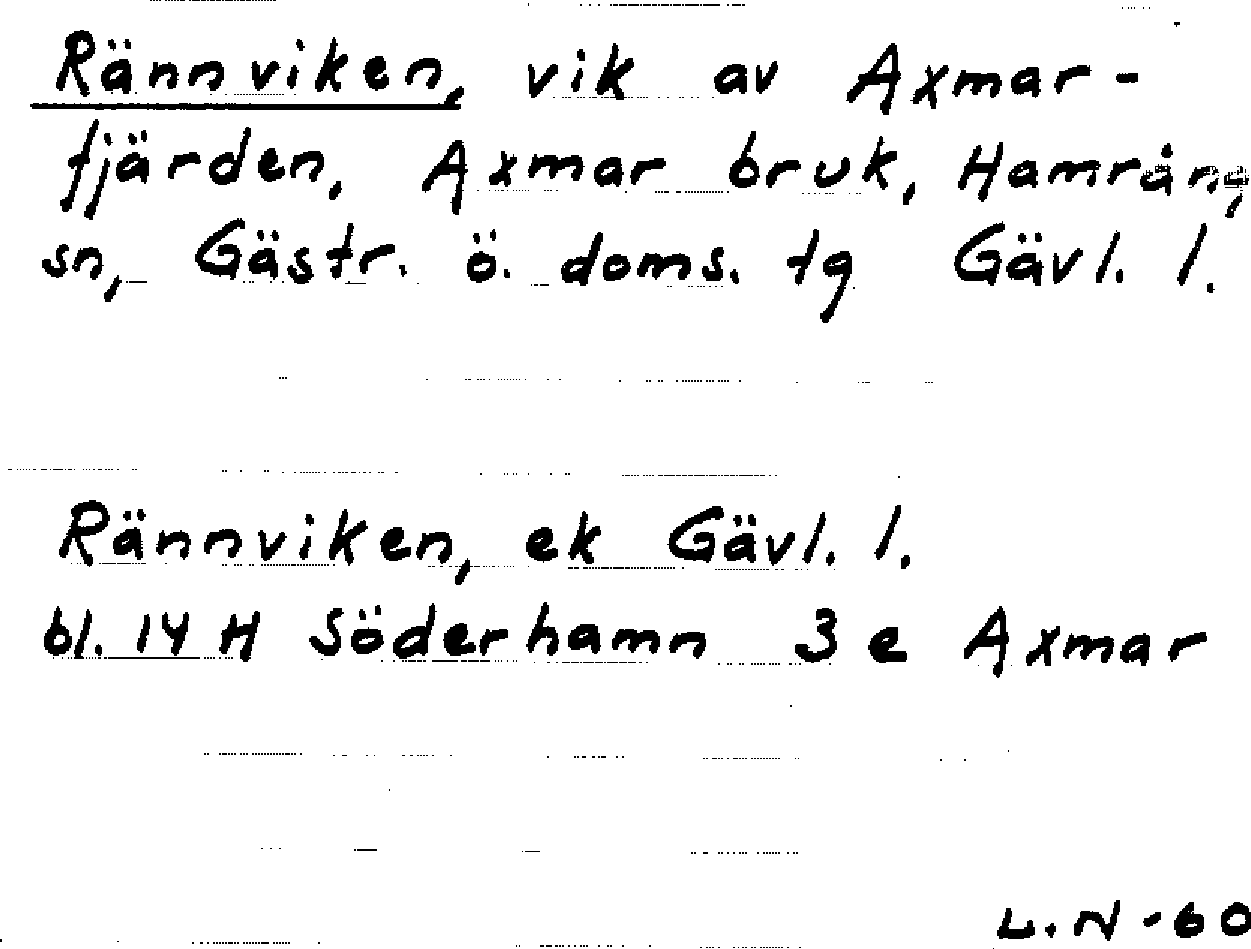 Rännviken, vik av Axmar-
fjärden, Axmar bruk, Hamrång
sn, Gästr. ö. doms. tg Gävl. l.
Rännviken, ek Gävl. l.
bl. 14 H Söderhamn 3 e Axmar
L.N-60